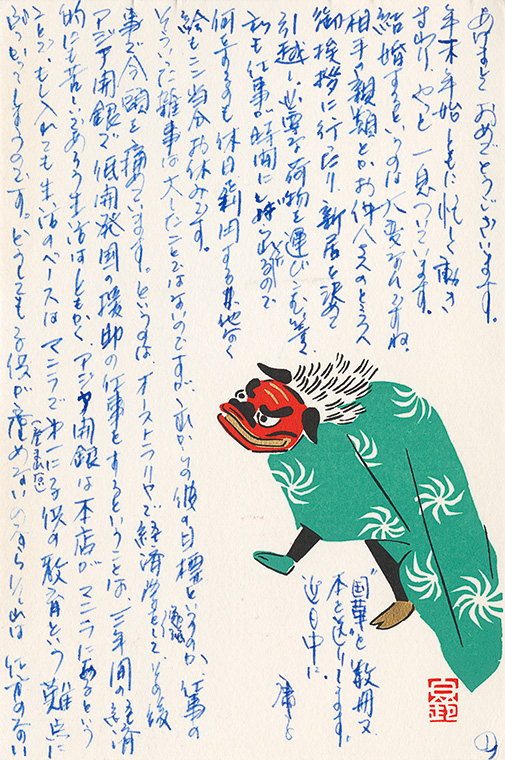 あけまして おめでとうございます。
年末年始ともに忙しく働き
やっと一息ついています。
結婚するというのは大変なんですね。
相手の親類とかお仲人さんのところへ
御挨拶に行ったり、新居を決めて
引越し、必要な荷物を運びこむ等々
私も仕事が時間に
何をするのも休日
絵もここ当分お休みです。
そういった雑事は大したことではないのですが、これからの彼の目標というのが
事で今頭を痛めています。というのは、オーストラリヤで経済学をして その後
アジア開銀で低開発国の援助の仕事をするということは、三年間の経済
的にも苦しいであろう生活はともかく、アジア開銀は本店がマニラにあるという
ことで、もし入れても生活のベースはマニラで 第一に子供の教育という難点に
ぶつかってしまうのです。どうしても子供が産めない
"国華"を数冊又
本を送りします。
近日中に。